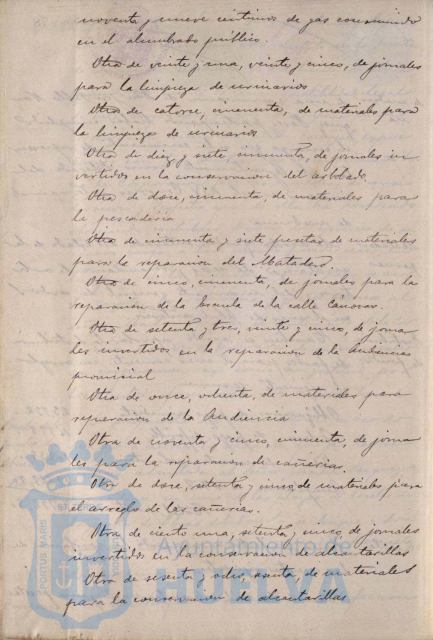 noventa y nueve céntimos de gas consumido
en el alumbrado público.
Otra de veinte y una, veinte y cinco, de jornales
para la limpieza de urinarios
Otra de catorce, cincuenta, de materiales para
la limpieza de urinarios
Otra de diez y siete cincuenta, de jornales in
vertidos en la conservacion del arbolado,
Otra de doce, cincuenta, de materiales para
la pescadería
Otra de cincuenta y siete pesetas de materiales
para la reparacion del Matadero.
Otra de cinco, cincuenta, de jornales para la
reparacion de la Escuela de la calle Cánovas.
Otra de setenta y tres, veinte y cinco, de jorna
les invertidos en la reparacion de la Audiencia
provincial
Otra de once, ochenta, de materiales para
reparacion de la Audiencia
Otra de noventa y cinco, cincuenta, de jorna
les para la reparacion de cañerias.
Otra de doce, setenta y cinco, de materiales para
el arreglo de las cañerias.
Otra de ciento una, setenta y cinco, de jornales
invertidos en la conservacion de alcantarillas
Otra de sesenta y ocho, de materiales
para la conservacion de alcantarillas
Ayuntamiento de
HUELVA
PORTUS MARIS